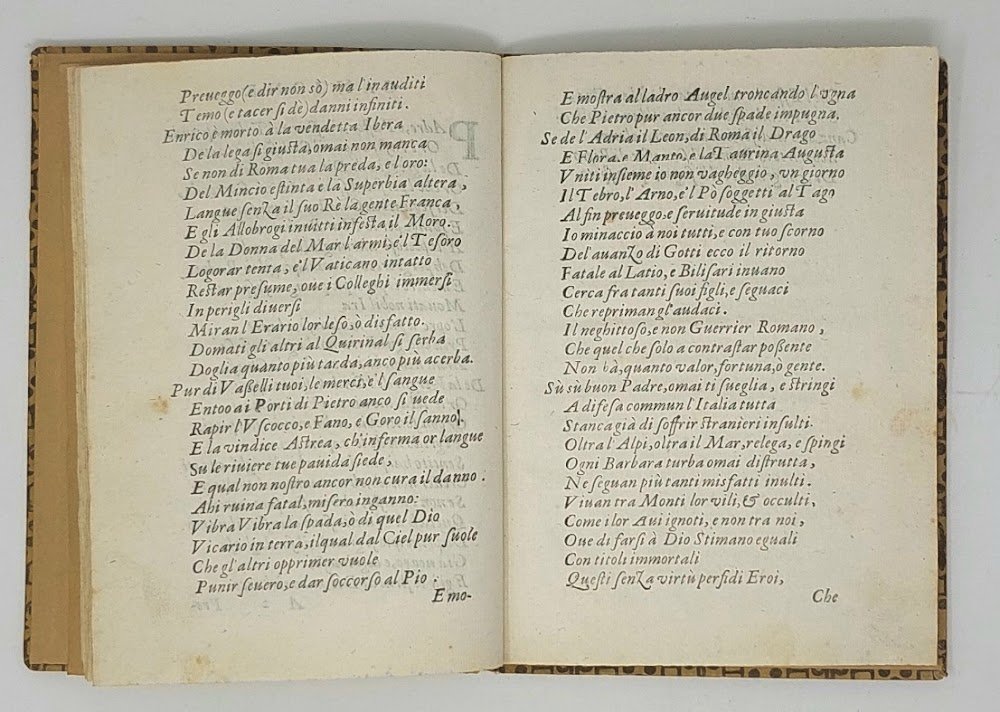 Preueggo (e dir non sò) ma l'inauditi
Temo (e tacer si dè) danni infiniti.
Enrico è morto à la vendetta Ibera
De la lega si giusta, omai non manca
Se non di Roma tua la preda, e l'oro:
Del Mincio estinta e la Superbia altera,
Langue senza il suo Rè la gente Franca,
E gli Allobrogi inuitti infesta il Moro.
De la Donna del Mar l'armi, e'l Tesoro
Logorar tenta, e'l Vaticano intatto
Restar presume, oue i Colleghi immersi
In perigli diuersi
Miran l'Erario lor leso, ò disfatto.
Domati gli altri al Quirinal si serba
Doglia quanto più tarda, anco più acerba.
Pur di Vasselli tuoi, le merci, e'l sangue
Entro ai Porti di Pietro anco si uede
Rapir l'Vscocco, e Fano, e Goro il sanno,
E la vindice Astrea, ch'inferma or langue
Su le riuiere tue pauida siede,
E qual non nostro ancor non cura il danno.
Ahi ruina fatal, misero inganno:
Vibra Vibra la spada, ò di quel Dio
Vicario in terra, il qual dal Ciel pur suole
Che gl'altri opprimer vuole
Punir seuero, e dar soccorso al Pio.
E mo-
E mostra al ladro Augel troncando l'vgna
Che Pietro pur ancor due spade impugna.
Se de l'Adria il Leon, di Roma il Drago
E Flora, e Manto, e la Taurina Augusta
Vniti insieme io non vagheggio, vn giorno
Il Tebro, l'Arno, e'l Pò soggetti al Tago
Al fin preueggo, e seruitude in giusta
Io minaccio à noi tutti, e con tuo scorno
Del'auanzo di Gotti ecco il ritorno
Fatale al Latio, e Bilisari inuano
Cerca fra tanti suoi figli, e seguaci
Che repriman gl'audaci.
Il neghittoso, e non Guerrier Romano,
Che quel che solo a contrastar possente
Non hà, quanto valor, fortuna, o gente.
Sù sù buon Padre, omai ti sueglia, e stringi
A difesa commun l'Italia tutta
Stanca già di soffrir stranieri insulti.
Oltra l'Alpi, oltra il Mar, relega, e spingi
Ogni Barbara turba omai distrutta,
Ne seguan più tanti misfatti inulti.
Viuan tra Monti lor vili, & occulti,
Come i lor Aui ignoti, e non tra noi,
Oue di farsi à Dio Stimano eguali
Con titoli immortali
Questi senza virtù persidi Eroi,
Che